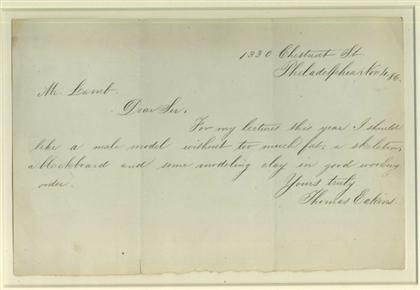 1330 Chestnut St.
Philadelphia Nov 4, 86.
Mr. Lamb.
Dear Sir,
For my lectures this year I should
like a male model without too much fat, a skeleton,
a blackboard and some modeling clay in good working
order.
Yours truly
Thomas Eakins.